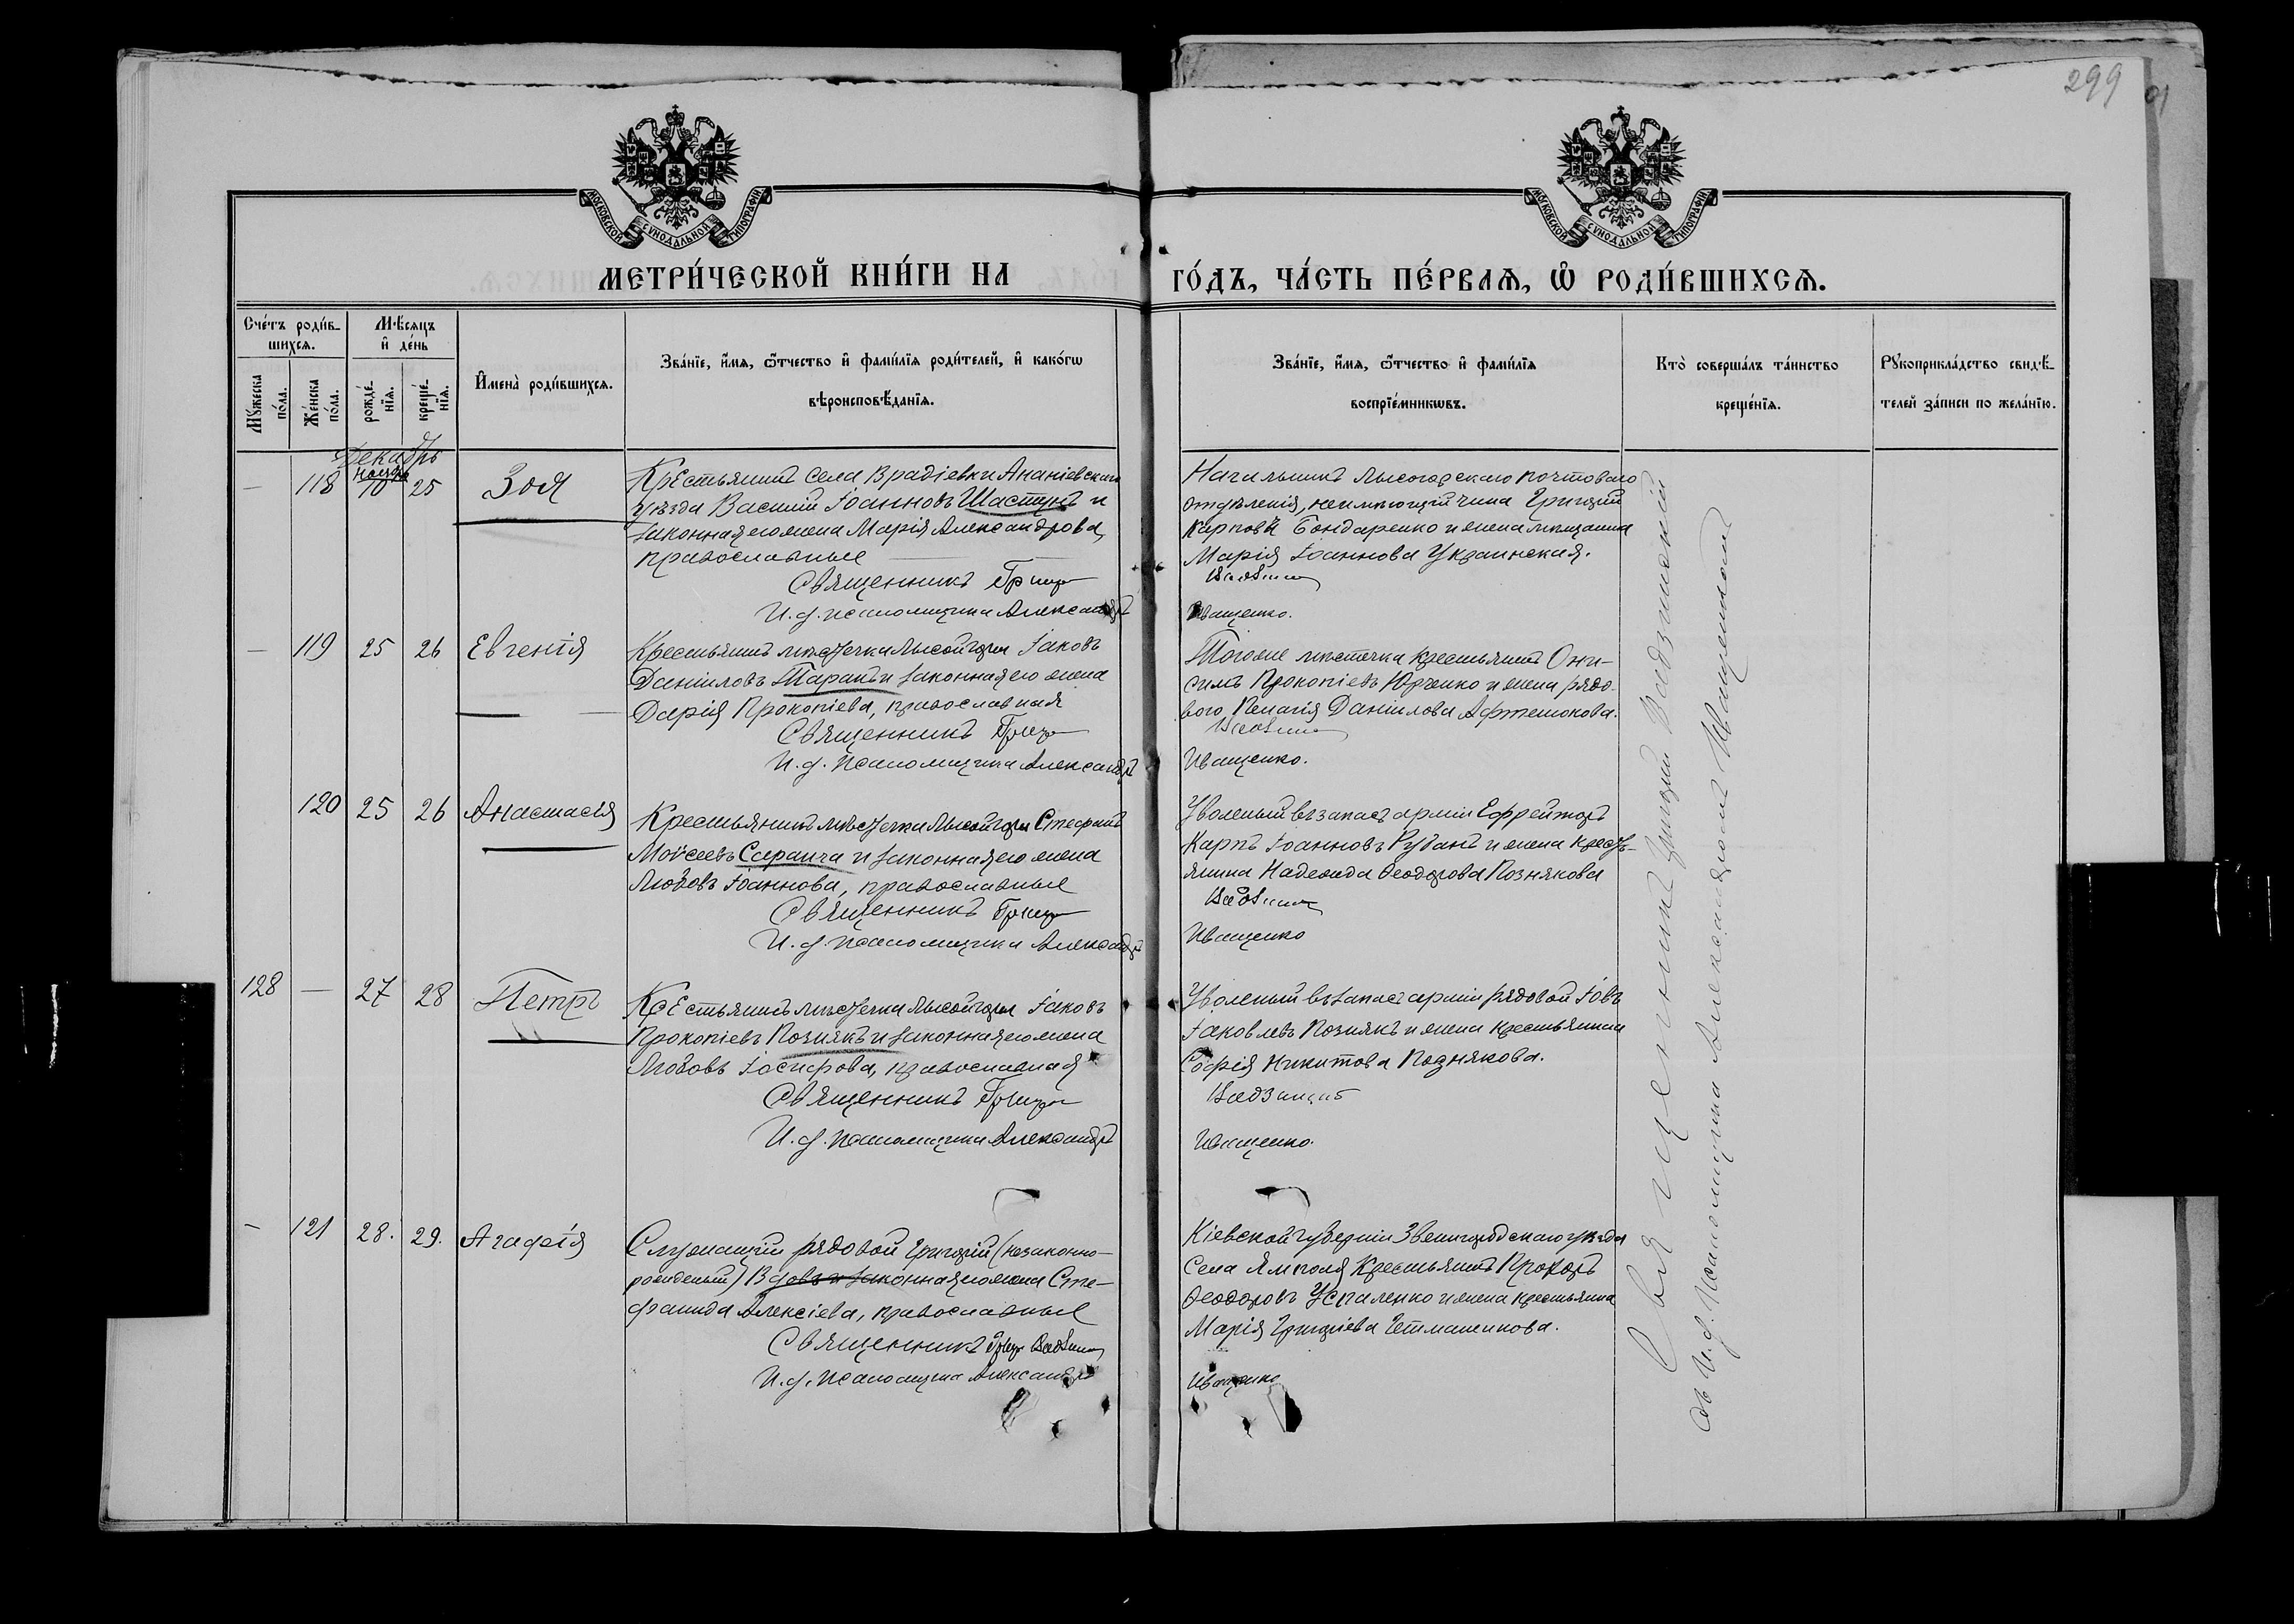 299
МОСКОВСКОЙ СѴНОДАЛЬНОЙ ТИПОГРАФІИ
МОСКОВСКОЙ СѴНОДАЛЬНОЙ ТИПОГРАФІИ
МЕТРИ́ЧЕСКОЙ КНИ́ГИ НА
ГО́ДЪ, ЧА́СТЬ ПЕ́РВАѦ, Ѡ҆ РОДИ́ВШИХСѦ.
Сче́тъ роди́в-
шихсѧ.
Мꙋ́жеска по́ла.
Же́нска по́ла.
Мѣ́сѧцъ
и҆ де́нь
рожде́-
нїѧ.
креще́-
нїѧ.
И҆мена̀ роди́вшихсѧ.
Зва́нїе, и҆́мѧ, ѻ҆́тчество и҆ фами́лїѧ роди́телей, и҆ како́гѡ
вѣроисповѣ́данїѧ.
Зва́нїе, и҆́мѧ, ѻ҆́тчество и҆ фами́лїѧ
воспрїе́мникѡвъ.
Кто̀ соверша́лъ та́инство
креще́нїѧ.
Рꙋкоприкла́дство свидѣ́-
телей за́писи по жела́нїю.
Декабрь
— 118 10 25 Зоя
Крестьянинъ села Врадіевки Ананіевскаго
уѣзда Василій Іоанновъ Шастунъ и
законная его жена Марія Александрова,
православные
Священникъ Григор
И. д. псаломщика Александръ
Начальникъ Лысогорскаго почтоваго
отдѣленія, неимѣющій чина Григорій
Карповъ Бондаренко и жена мѣщанина
Марія Іоаннова Украинская.
Иващенко.
— 119 25 26 Евгенія
Крестьянинъ мѣстечка Лысой горы Іаковъ
Даніиловъ Таранъ и законная его жена
Дарія Прокопіева, православная
Священникъ Григор
И. д. псаломщика Александръ
Тогоже мѣстечка крестьянинъ Они-
симъ Прокопіевъ Юрченко и жена рядо-
вого Пелагія Даніилова Афтенюкова.
Иващенко.
120 25 26 Анастасія
Крестьянинъ мѣстечка Лысой горы Стефанъ
Моѵсеевъ Саранча и законная его жена
Любовь Іоаннова, православные
Священникъ Григор
И. д. псаломщика Александръ
Уволеный въ запасъ арміи Ефрейторъ
Карпъ Іоанновъ Рубанъ и жена кресть-
янина Надежда Ѳеодорова Познякова
Иващенко
128 — 27 28 Петръ
Крестьянинъ мѣстечка Лысой горы Іаковъ
Прокопіевъ Познякъ и законная его жена
Любовь Іосифова, православная
Священникъ Григор
И. д. псаломщика Александръ
Уволеный въ запасъ арміи рядовой Іовъ
Іаковлевъ Познякъ и жена крестьянина
Софія Никитова Познякова.
Иващенко.
— 121 28. 29. Агафія
Служащій рядовой Григорій (незаконно-
рожденный) Вдовъ и законная его жена Сте-
фанида Алексіева, православные
Священникъ Григор
И. д. псаломщика Александръ
Кіевской губерніи Звенигородскаго уѣзда
села Ямполя крестьянинъ Прохоръ
Ѳеодоровъ Успаленко и жена крестьянина
Марія Григоріева Гетманенкова.
Иващенко
Священникъ Григорій
съ И. д. псаломщика Александромъ Иващенкомъ